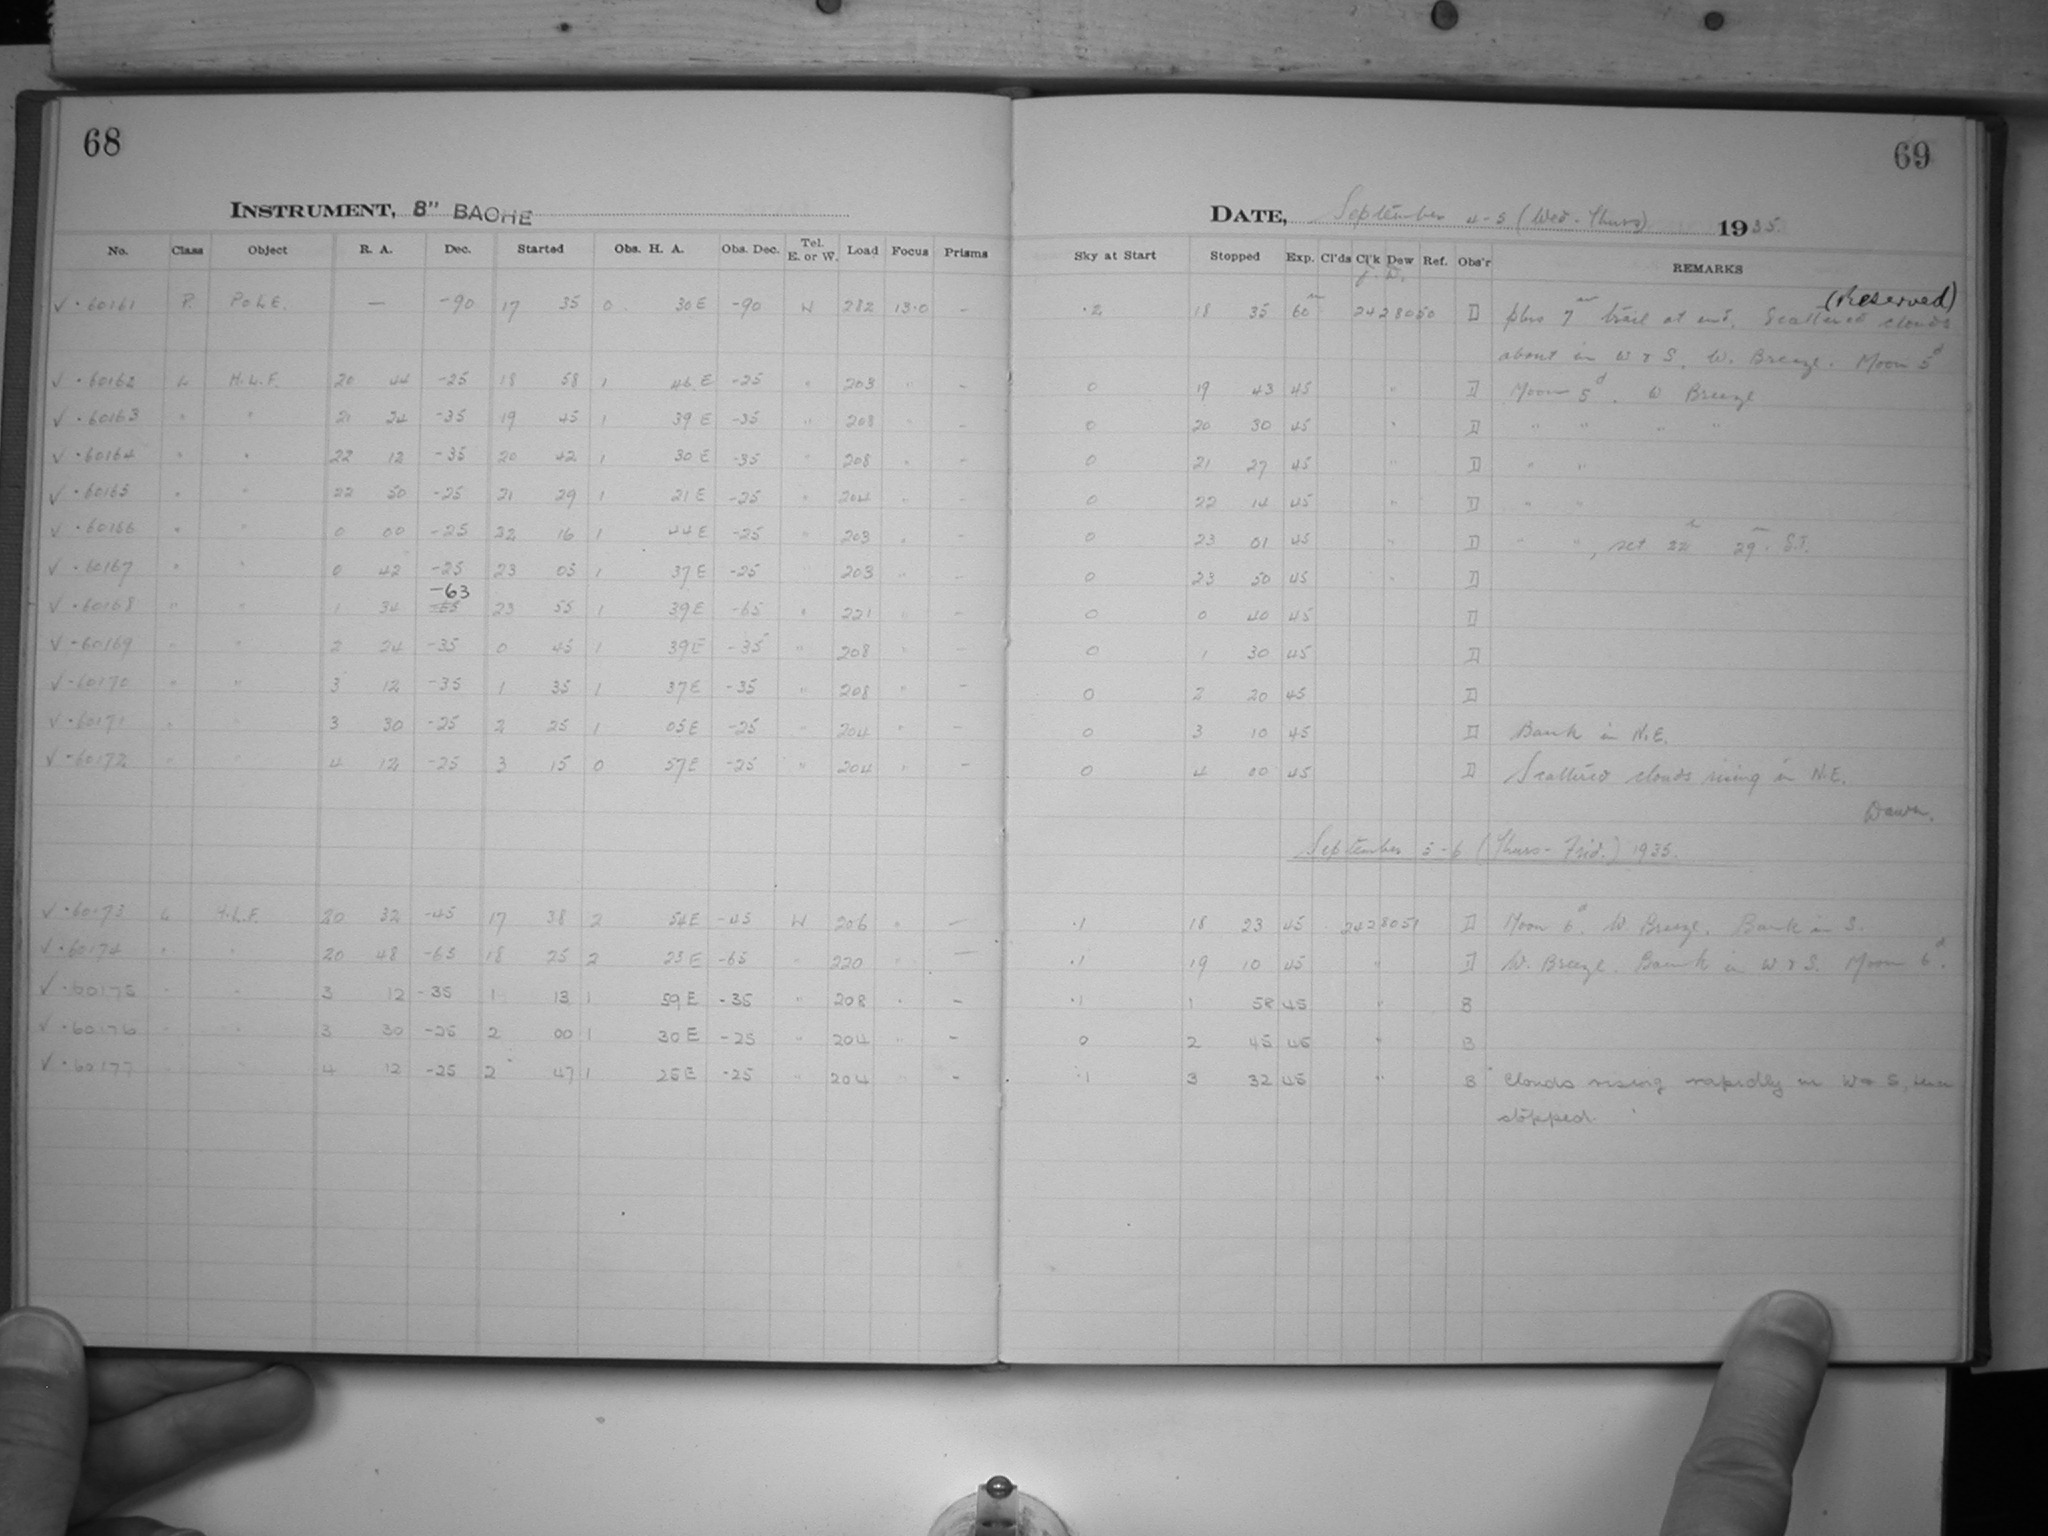 68
INSTRUMENT, 8" BACHE
No. Class Object R. A. Dec. Started Obs. H. A. Obs. Dec. Tel. E. or W. Load Focus Prisms
√ · 60161 P. POLE. — -90 17 35 0 30 E -90 W 282 13·0 -
√ · 60162 L H.L.F. 20 44 -25 18 58 1 46 E -25 " 203 " -
√ · 60163 " " 21 24 -35 19 45 1 39 E -35 " 208 " -
√ · 60164 " " 22 12 -35 20 42 1 30 E -35 " 208 " -
√ · 60165 " " 22 50 -25 21 29 1 21 E -25 " 204 " -
√ · 60166 " " 0 00 -25 22 16 1 44 E -25 " 203 " -
√ · 60167 " " 0 42 -25 23 05 1 37 E -25 " 203 " -
-63
√ · 60168 " " 1 34 -65 23 55 1 39 E -65 " 221 " -
√ · 60169 " " 2 24 -35 0 45 1 39 E -35 " 208 " -
√ · 60170 " " 3 12 -35 1 35 1 37 E -35 " 208 " -
√ · 60171 " " 3 30 -25 2 25 1 05 E -25 " 204 " -
√ · 60172 " " 4 12 -25 3 15 0 57 E -25 " 204 " -
√ · 60173 L H.L.F. 20 32 -45 17 38 2 54 E -45 W 206 " —
√ · 60174 " " 20 48 -65 18 25 2 23 E -65 " 220 " —
√ · 60175 " " 3 12 -35 1 13 1 59 E -35 " 208 " -
√ · 60176 " " 3 30 -25 2 00 1 30 E -25 " 204 " -
√ · 60177 " " 4 12 -25 2 47 1 25 E -25 " 204 " -
69
DATE, September 4-5 (Wed - Thurs) 1935.
Sky at Start Stopped Exp. Cl'ds Cl'k Dew Ref. Obs'r REMARKS
J. D.
(Reserved)
·2 18 35 60m 2428050 D plus 7m trail at end. Scattered clouds
about in W & S. W. Breeze. Moon 5d
0 19 43 45 " D Moon 5d. W Breeze
0 20 30 45 " D " " " "
0 21 27 45 " D " "
0 22 14 45 " D " "
0 23 01 45 " D " ", set 22h 29m. S.T.
0 23 50 45 " D
0 0 40 45 D
0 1 30 45 D
0 2 20 45 D
0 3 10 45 D Bank in N.E.
0 4 00 45 D Scattered clouds rising in N.E.
Dawn.
September 5-6 (Thurs - Frid.) 1935.
·1 18 23 45 2428051 D Moon 6d. W. Breeze. Bank in S.
·1 19 10 45 " D W. Breeze. Bank in W & S. Moon 6d.
·1 1 58 45 " B
0 2 45 45 " B
·1 3 32 45 " B Clouds rising rapidly in W & S,
stopped.